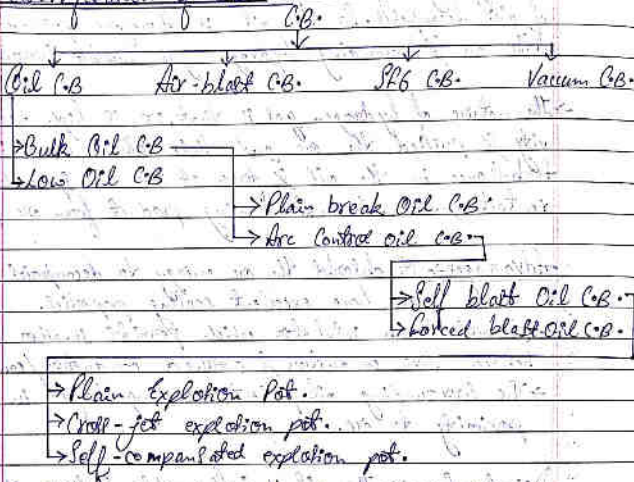 C.B.
Oil C.B Air-blast C.B. Sf6 C.B. Vacuum C.B.
Bulk Oil C.B
Low Oil C.B
Plain break Oil C.B.
Arc Control oil C.B.
Self blast Oil C.B.
Forced blast oil C.B.
Plain Explotion Pot.
Cross-jet explotion pot.
Self-compansated explotion pot.